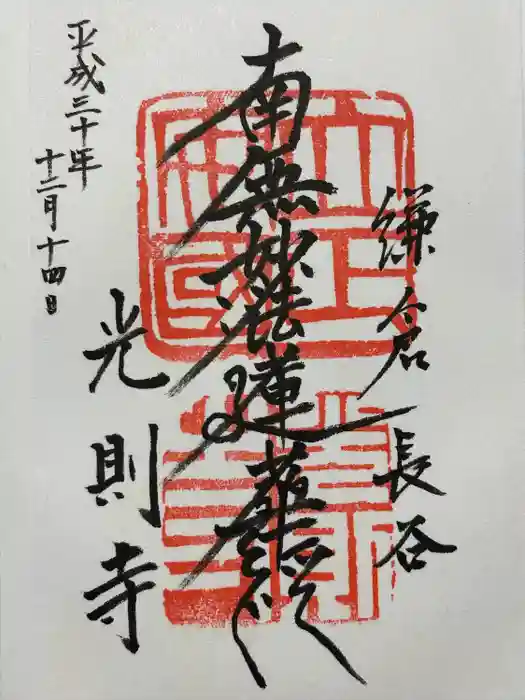 鎌倉 長谷
南無妙法蓮華経
立正安國
光則寺
平成三十年
十二月十四日